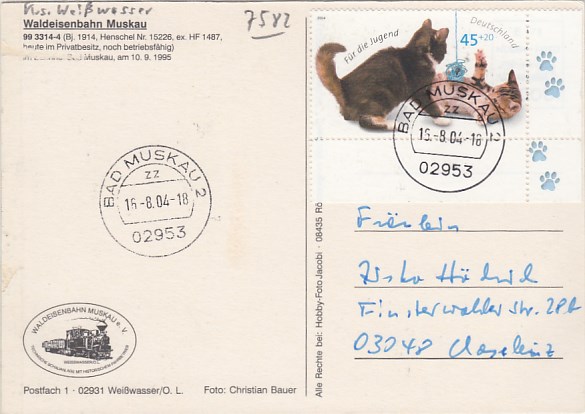 Krs. Weißwasser
7582
Waldeisenbahn Muskau
99 3314-4 (Bj. 1914, Henschel Nr. 15226, ex. HF 1487,
heute im Privatbesitz, noch betriebsfähig)
Muskau, am 10. 9. 1995
Für die Jugend
45+20
Deutschland
BAD MUSKAU 2
zz
16.-8.04-18
02953
BAD MUSKAU 2
zz
16.-8.04-18
02953
Fräulein
Finsterwalder Str.
03048
Alle Rechte bei: Hobby-Foto Jacobi · 08435 Rö
WALDEISENBAHN MUSKAU e.V.
Postfach 1 · 02931 Weißwasser/O. L.
Foto: Christian Bauer